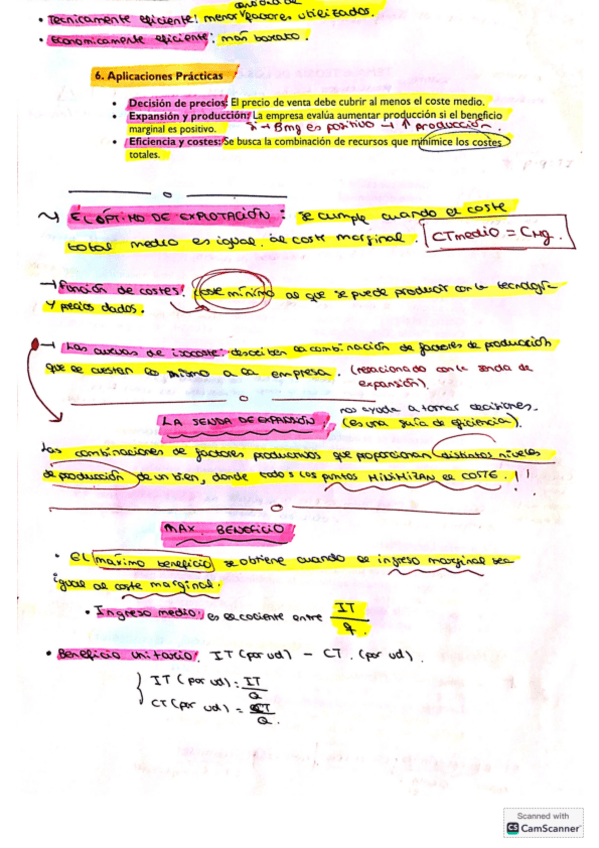 cantidad de
• Tecnicamente eficiente: menor factores utilizados.
• Economicamente eficiente: más barato.
6. Aplicaciones Prácticas
• Decisión de precios: El precio de venta debe cubrir al menos el coste medio.
• Expansión y producción: La empresa evalúa aumentar producción si el beneficio
marginal es positivo. si → Bmg es positivo → ↑ producción.
• Eficiencia y costes: Se busca la combinación de recursos que minimice los costes
totales.
EL ÓPTIMO DE EXPLOTACIÓN: se cumple cuando el coste
total medio es igual al coste marginal. CTmedio = CMg.
→ Función de costes: coste mínimo al que se puede producir con la tecnología
y precios dados.
→ Las curvas de isocoste: describen la combinación de factores de producción
que le cuestan lo mismo a la empresa. (relacionado con la senda de
expansión).
nos ayuda a tomar decisiones.
LA SENDA DE EXPANSIÓN: (es una guía de eficiencia).
Las combinaciones de factores productivos que proporcionan distintos niveles
de producción de un bien, donde todos los puntos MINIMIZAN el COSTE.!!
MAX. BENEFICIO
• EL máximo beneficio se obtiene cuando el ingreso marginal sea
igual al coste marginal.
• Ingreso medio: es el cociente entre IT
q.
• Beneficio unitario: IT (por ud) - CT. (por ud).
IT (por ud) = IT
Q
CT (por ud) = CT
Q.
Scanned with
CS CamScanner